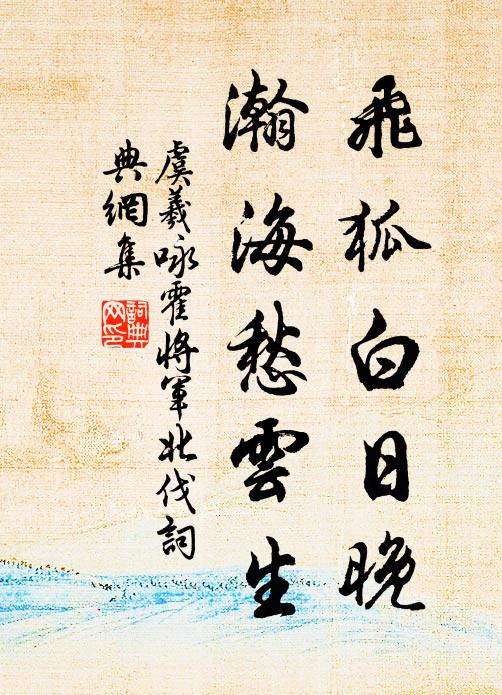 飛狐白日晚
瀚海愁雲生
虞羲咏霍將軍北伐詞
典網集
詞典網印